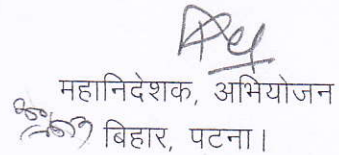 महानिदेशक, अभियोजन
बिहार, पटना।